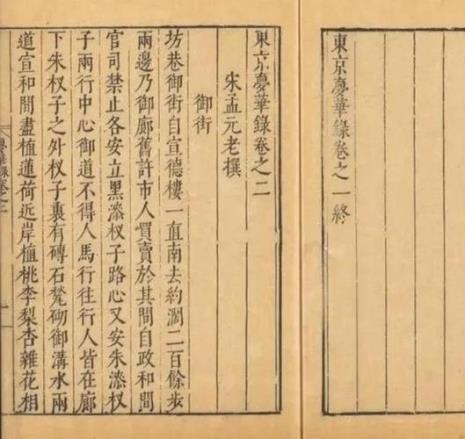 東京夢華錄卷之一終
東京夢華錄卷之二
宋孟元老撰
御街
坊巷御街自宣德樓一直南去約濶二百餘步
兩邊乃御廊舊許市人買賣於其間自政和間
官司禁止各安立黑漆杈子路心又安朱漆杈
子兩行中心御道不得人馬行往行人皆在廊
下朱杈子之外杈子裏有磚石甃砌御溝水兩
道宣和間盡植蓮荷近岸植桃李梨杏雜花相